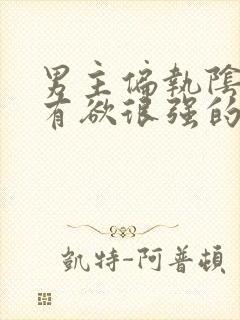 男主偏執陰
有欲很强的
凱特-阿普頓